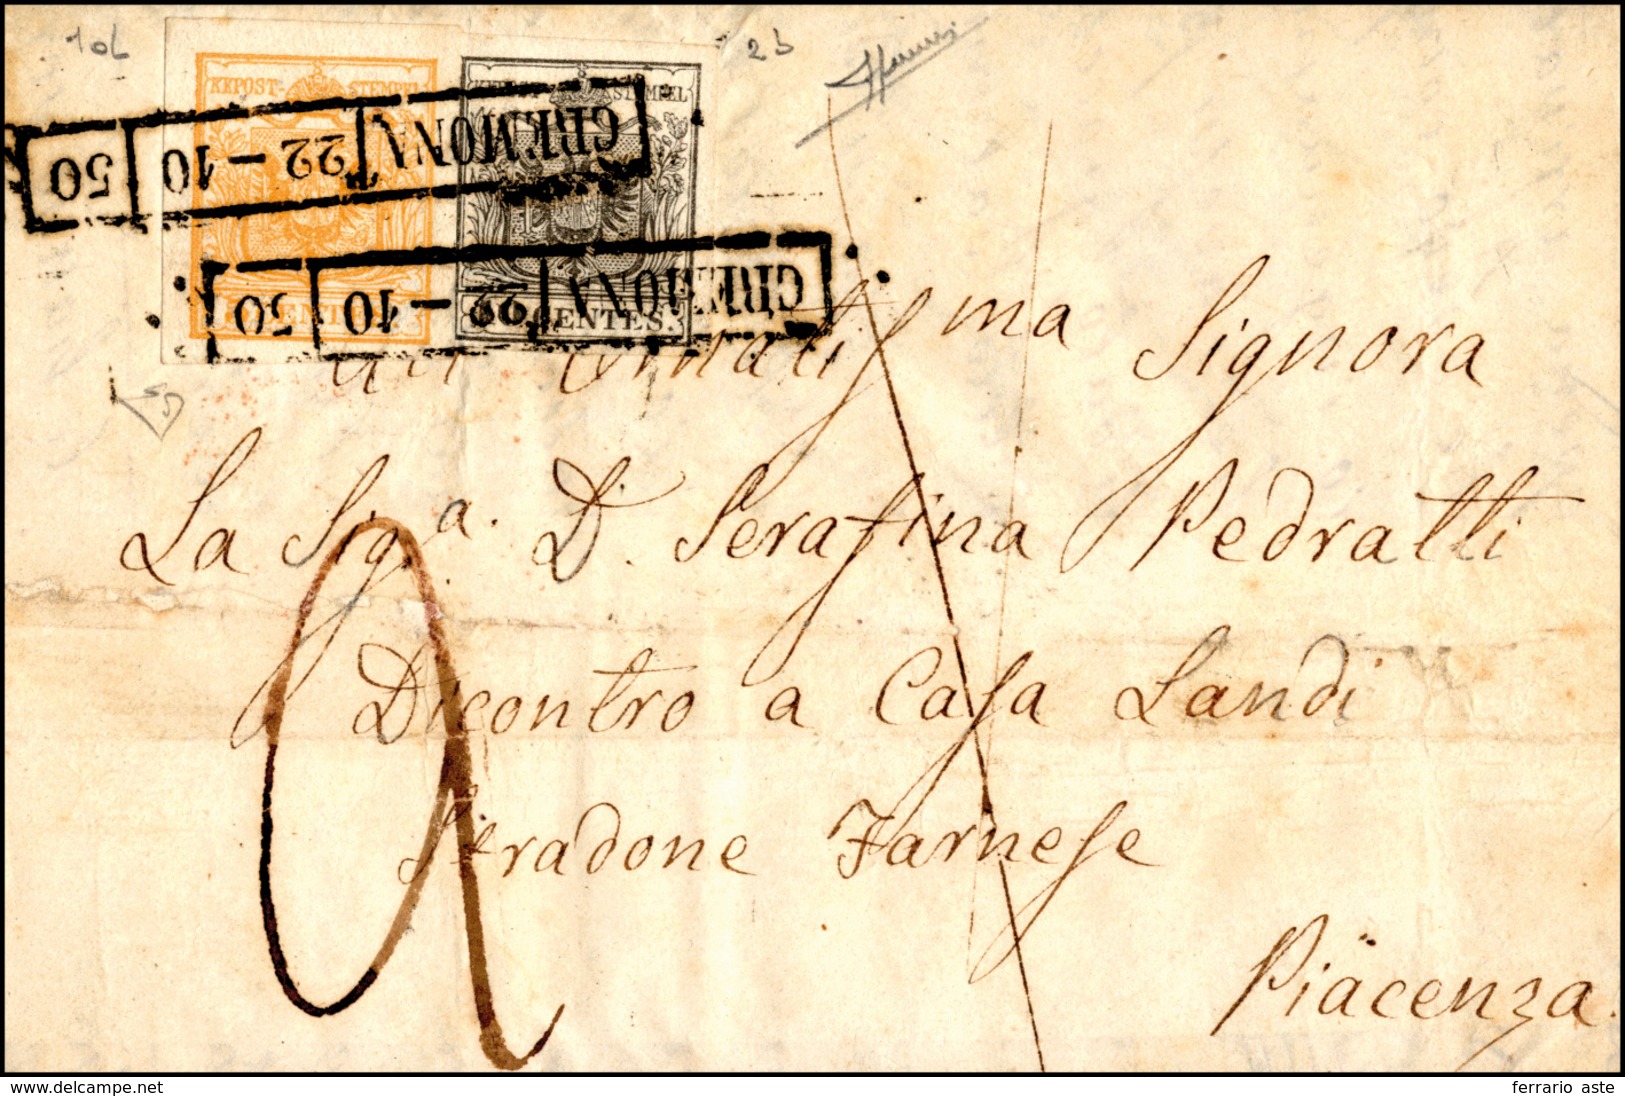 10L
2b
KKPOST-STEMPEL
STEMPEL
CREMONA 22-10 50
CREMONA 22-10 50
CENTES.
Signora
La Sig.a D. Serafina Pedratti
Dicontro a Casa Landi
Stradone Farnese
Piacenza.
www.delcampe.net
ferrario aste